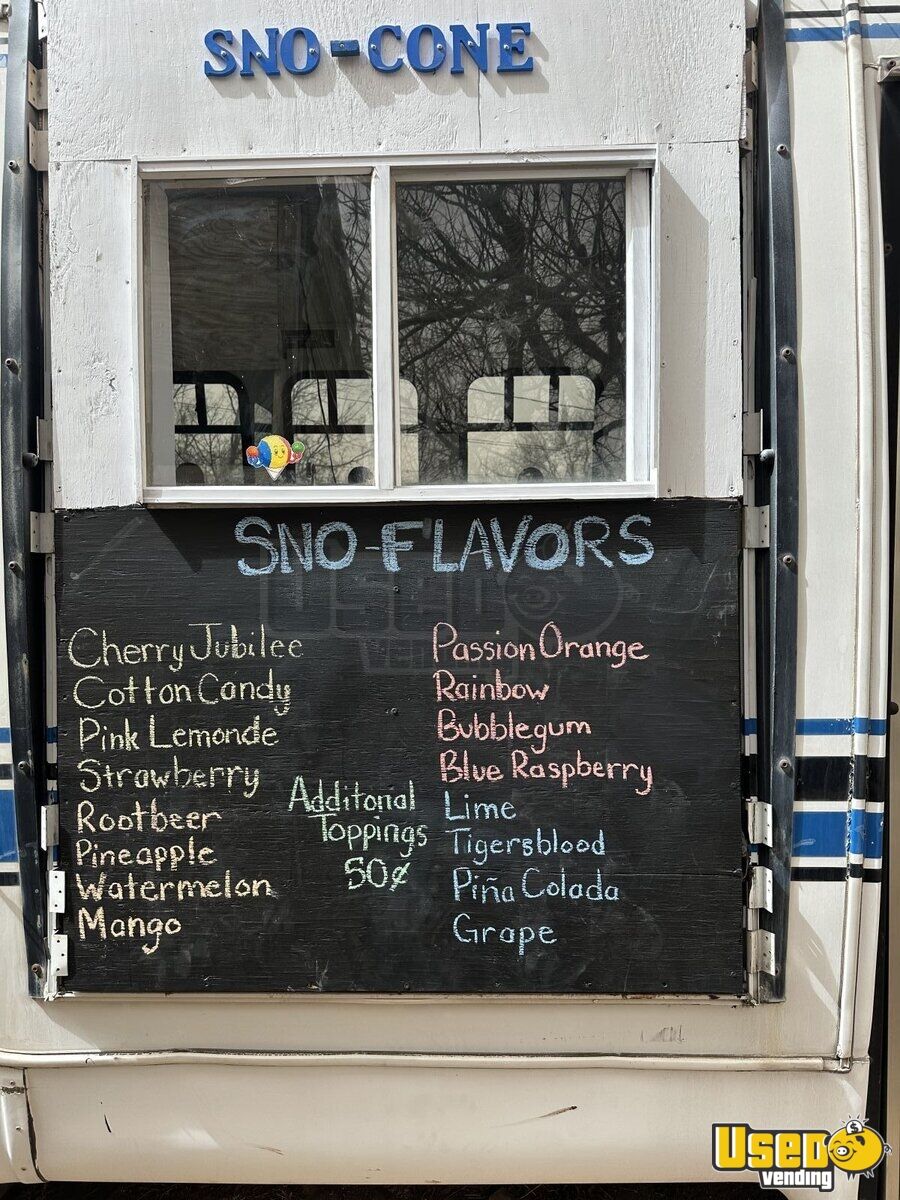 SNO-CONE
SNO-FLAVORS
Cherry Jubilee
Cotton Candy
Pink Lemonde
Strawberry
Rootbeer
Pineapple
Watermelon
Mango
Additonal
Toppings
50¢
Passion Orange
Rainbow
Bubblegum
Blue Raspberry
Lime
Tigersblood
Piña Colada
Grape
USED
VENDING
USED
vending